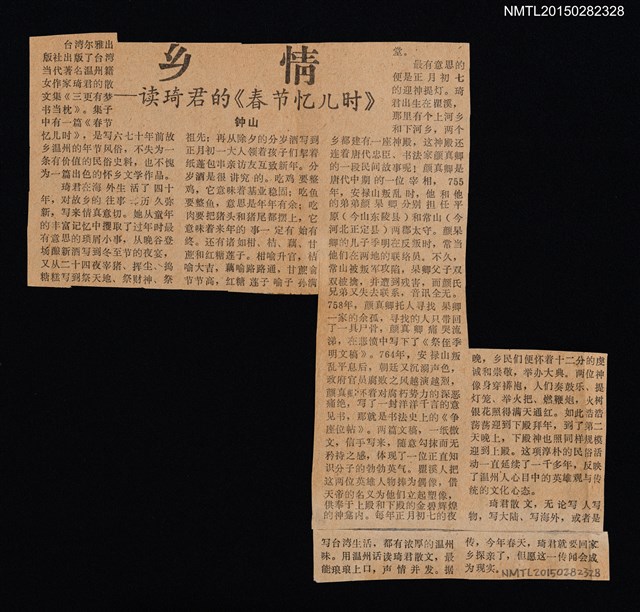 NMTL20150282328
乡情
——读琦君的《春节忆儿时》
钟山
台湾尔雅出
版社出版了台湾
当代著名温州籍
女作家琦君的散
文集《三更有梦
书当枕》。集子
中有一篇《春节
忆儿时》，是写六七十年前故
乡温州的年节风俗，不失为一
条有价值的民俗史料，也不愧
为一篇出色的怀乡文学作品。
琦君在海外生活了四十
年，对故乡的往事历久弥
新，写来情真意切。她从童年
的丰富记忆中攫取了过年时最
有意思的琐屑小事，从晚谷登
场酿新酒写到冬至节的夜宴，
又从二十四夜宰猪、掸尘、捣
糖糕写到祭天地、祭财神、祭
祖先；再从除夕的分岁酒写到
正月初一大人领着孩子们掣着
纸蓬包串亲访友互致新年。分
岁酒是很讲究的。吃鸡要整
鸡，它意味着基业稳固；吃鱼
要整鱼，意思是年年有余；吃
肉要把猪头和猪尾都摆上，它
意味着来年的事一定有始有
终。还有诸如柑、桔、藕、甘
蔗和红糖莲子。柑喻升官，桔
喻大吉，藕喻路路通，甘蔗音
节节高，红糖莲子喻子孙满
堂。
最有意思的
便是正月初七
的迎神提灯。琦
君出生在瞿溪，
那里有个上河乡
和下河乡，两个
乡都建有一座神殿，这神殿还
连着唐代忠臣、书法家颜真卿
的一段民间故事呢！颜真卿是
唐代中期的一位宰相，755
年，安禄山叛乱时，他和他
的弟弟颜杲卿分别担任平
原（今山东陵县）和常山（今
河北正定县）两郡太守。颜杲
卿的儿子季明在反叛时，常当
他们在两地的联络员。不久，
常山被叛军攻陷，杲卿父子双
双被擒，并遭到残害，而颜氏
兄弟又失去联系，音讯全无。
758年，颜真卿托人寻找杲卿
一家的余孤，寻找的人只带回
了一具尸骨，颜真卿痛哭流
涕，在悲愤中写下了《祭侄季
明文稿》。764年，安禄山叛
乱平息后，朝廷又沉溺声色，
政府官员腐败之风越演越烈，
颜真卿怀着对腐朽势力的深恶
痛绝，写了一封洋洋千言的意
见书，那就是书法史上的《争
座位帖》。两篇文稿，一纸微
文，信手写来，随意勾抹而无
矜持之感，体现了一位正直知
识分子的勃勃英气。瞿溪人把
这两位英雄人物捧为偶像，借
天帝的名义为他们立起塑像，
供奉于上殿和下殿的金碧辉煌
的神龛内。每年正月初七的夜
晚，乡民们便怀着十二分的虔
诚和崇敬，举办大典。两位神
像身穿蟒袍，人们奏鼓乐、提
灯笼、举火把、燃鞭炮，火树
银花照得满天通红。如此浩浩
荡荡迎到下殿拜年，到了第二
天晚上，下殿神也照同样规模
迎到上殿。这项淳朴的民俗活
动一直延续了一千多年，反映
了温州人心目中的英雄观与传
统的文化心态。
琦君散文，无论写人写
物，写大陆、写海外，或者是
写台湾生活，都有浓厚的温州
味。用温州话读琦君散文，最
能琅琅上口，声情并发。据
传，今年春天，琦君就要回家
乡探亲了，但愿这一传闻会成
为现实。
NMTL20150282328